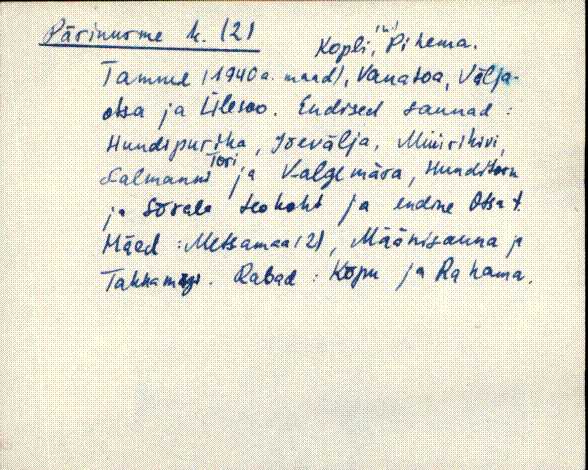 Pärinurme k. (2)
Kopli, Pihema.
Tamme (1940 a. maad), Vanatoa, Välja-
otsa ja Ülesoo. Endised saunad:
Hundipurika, Jõevälja, Müürikivi,
Salmanni Tori ja Valgemäea, Hunditoru
ja Sõrale teokoht ja endine Otsa t.
Mäed: Metsamaa (2), Määnisauna ja
Takkamägi. Rabad: Kõpu ja Rahama.